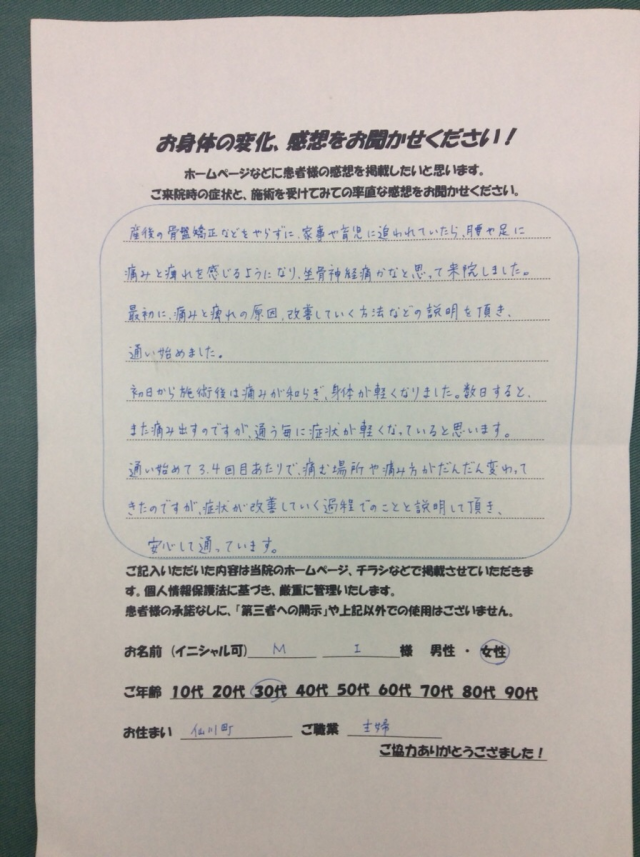 お身体の変化、感想をお聞かせください！
ホームページなどに患者様の感想を掲載したいと思います。
ご来院時の症状と、施術を受けてみての率直な感想をお聞かせください。
産後の骨盤矯正などをやらずに、家事や育児に追われていたら、腰や足に
痛みと痺れを感じるようになり、坐骨神経痛かなと思って来院しました。
最初に、痛みと痺れの原因、改善していく方法などの説明を頂き、
通い始めました。
初日から施術後は痛みが和らぎ、身体が軽くなりました。数日すると、
また痛み出すのですが、通う毎に症状が軽くなっていると思います。
通い始めて3.4回目あたりで、痛む場所や痛み方がだんだん変わって
きたのですが、症状が改善していく過程でのことと説明して頂き、
安心して通っています。
ご記入いただいた内容は当院のホームページ、チラシなどで掲載させていただきま
す。個人情報保護法に基づき、厳重に管理いたします。
患者様の承諾なしに、「第三者への開示」や上記以外での使用はございません。
お名前（イニシャル可） M I 様 男性 ・ 女性
ご年齢 10代 20代 30代 40代 50代 60代 70代 80代 90代
お住まい 仙川町 ご職業 主婦
ご協力ありがとうござました！